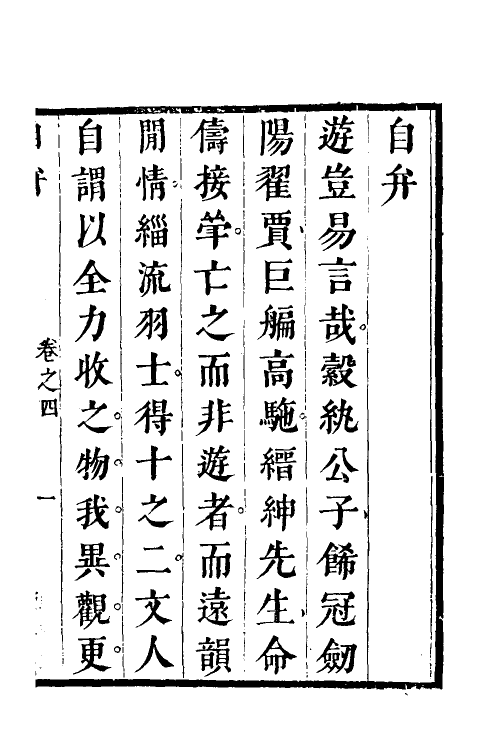 自弁
遊豈易言哉。縠紈公子餙冠劒
陽翟賈巨艑高駞縉紳先生命
儔接䇯亡之而非遊者。而遠韻
閒情緇流羽士。得十之二。文人
自謂以全力收之。物。我。異。觀。更。
卷之四
一